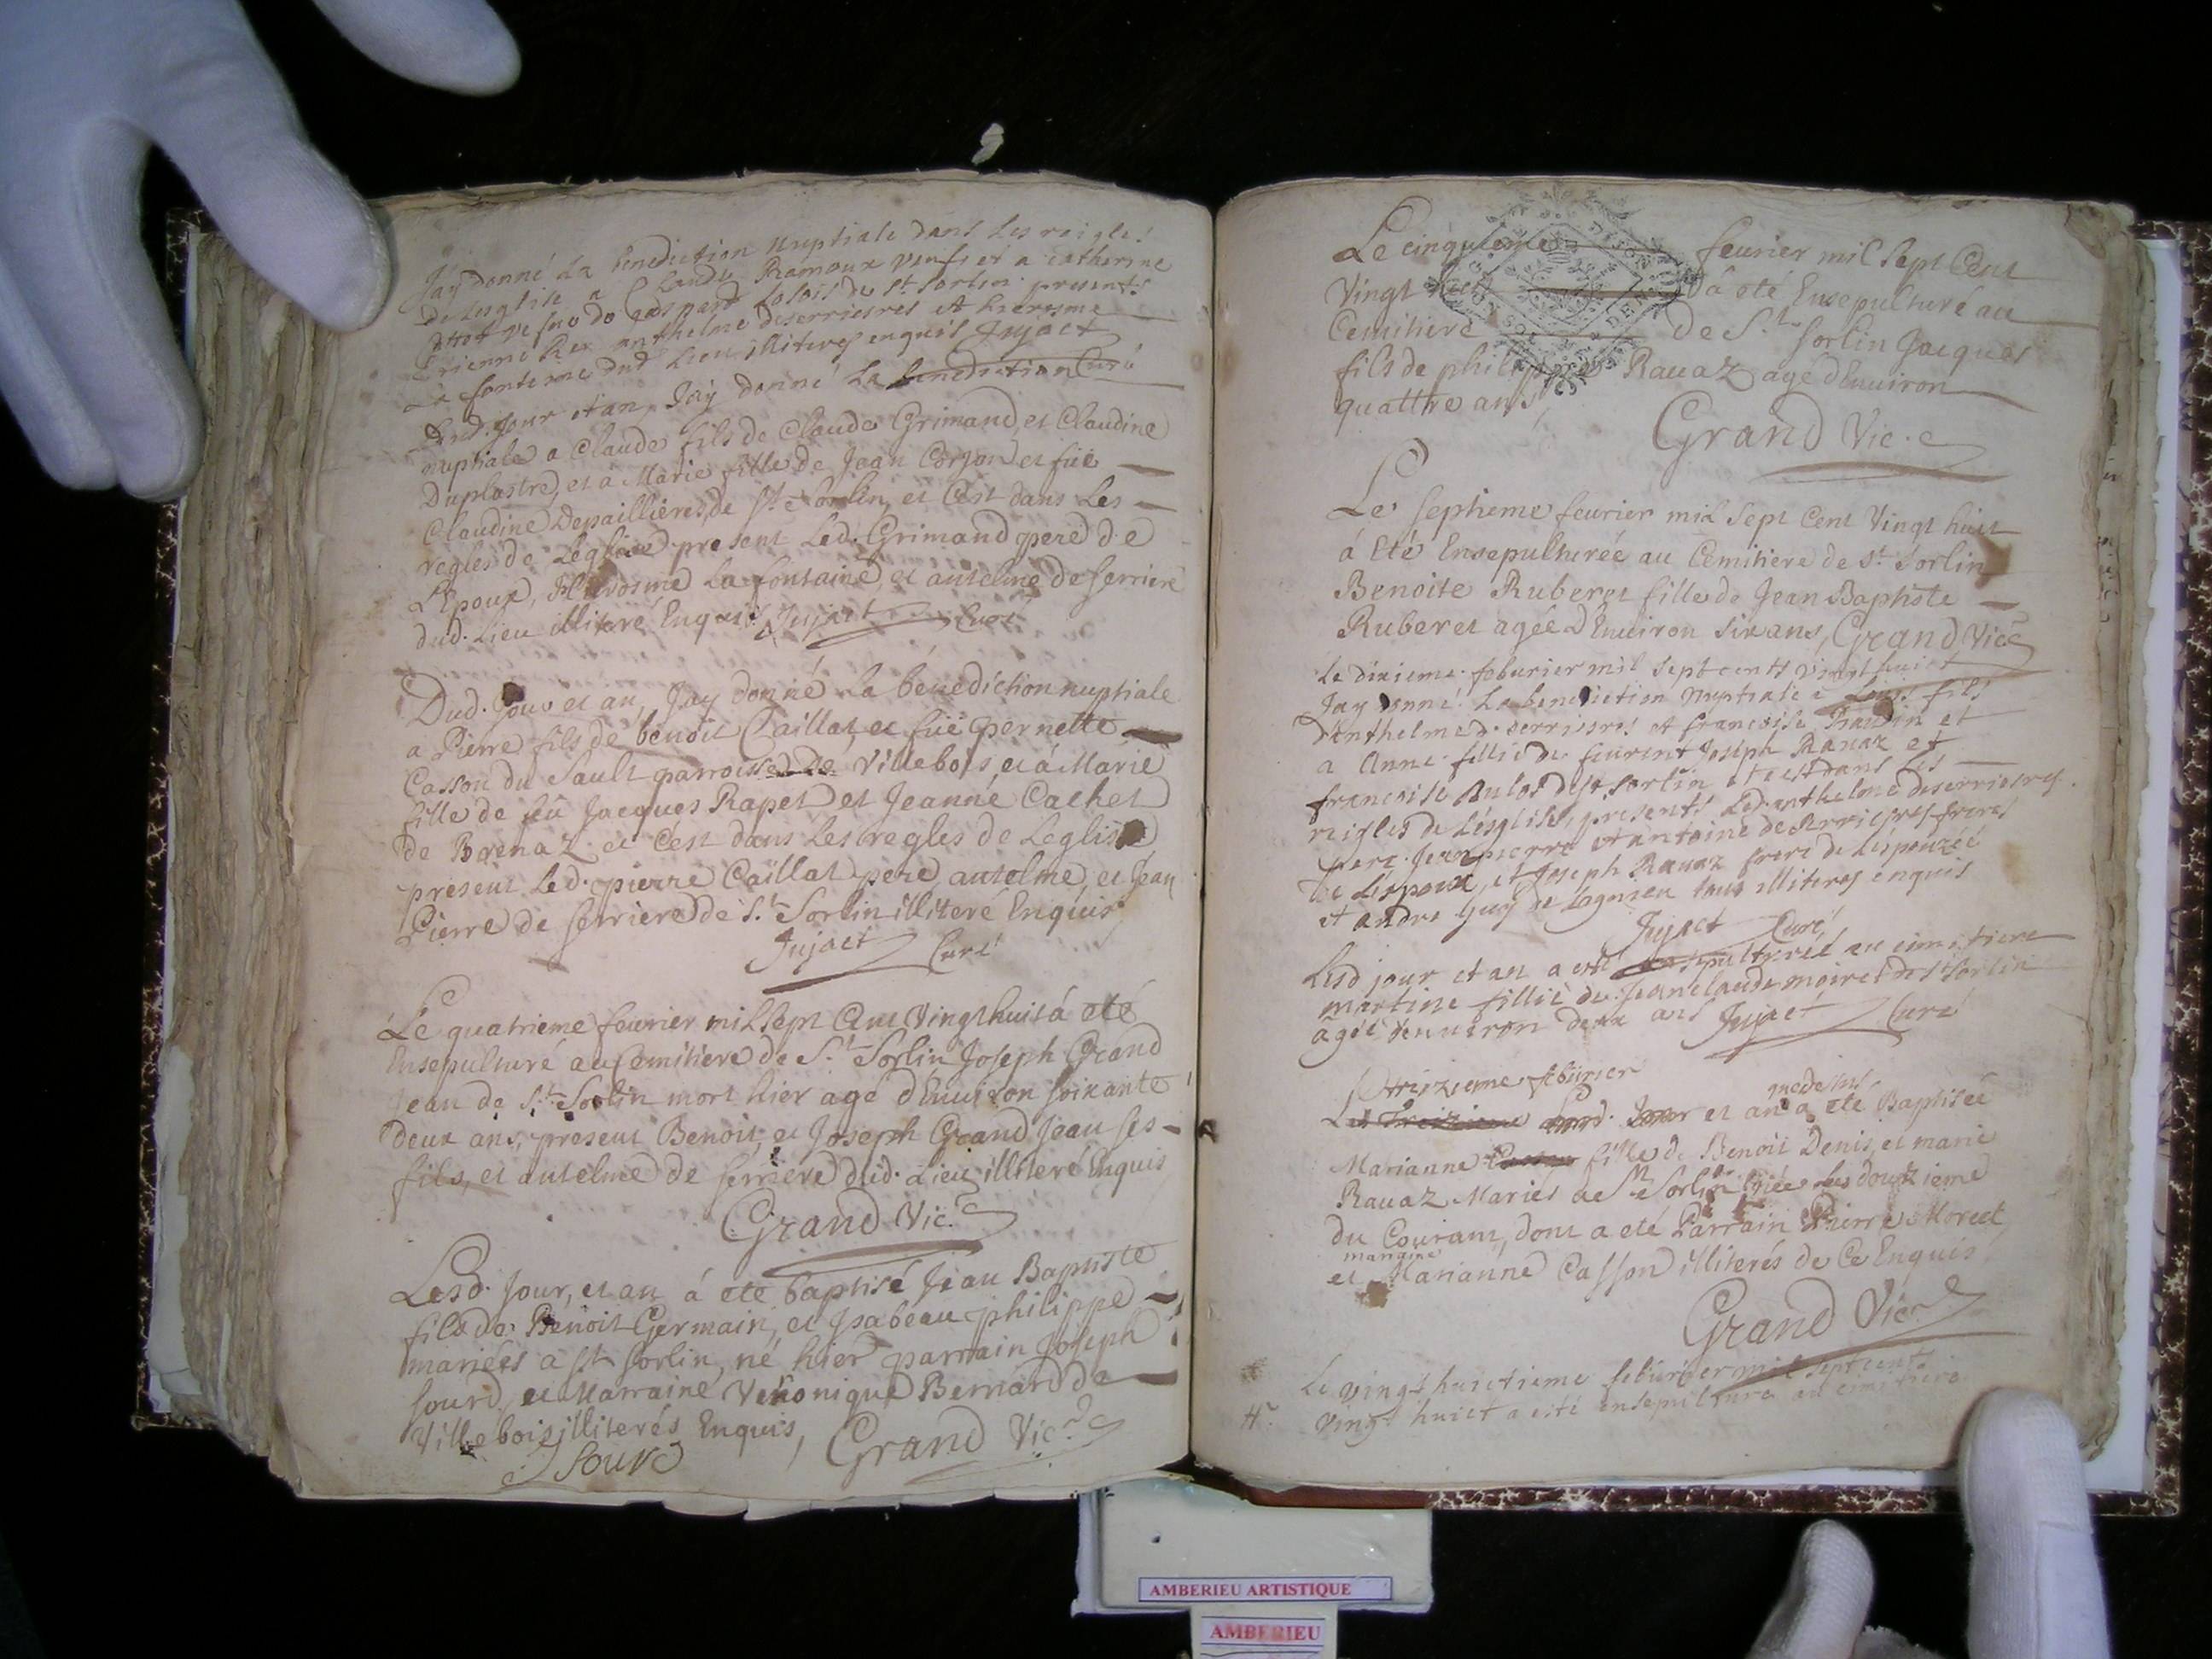 Jay donné La benediction nuptiale dans les reigles
De Leglise a Claude Ramoux veufs et a catherine
de St Sorlin presents
Rex anthelme deserrieres et hierosme
La fontaine dud Lieu illiteres enquis Jujact
Dud. Jour et an, Jay donné La benediction Curé
nuptiale a Claude fils de Claude Grimand, et Claudine
Duplastre, et a Marie fille de Jean Corjon et füe
Claudine Depaillieres, de St. Sorlin, et Cest dans Les
regles de Leglise present Led. Grimand pere de
L'Epoux, Hierosme La fontaine, et antelme de serriere
dud. Lieu illiteré Enquis. Jujact Curé
Dud. Jour et an, Jay donné La bénediction nuptiale
a Pierre fils de benoit Caillat, et füe pernette
Casson du Sault parroisse de Villebois, et á Marie
fille de feü Jacques Rapet et Jeanne Cachet
de Brenaz. et Cest dans Les regles de Leglise
present Led. pierre Caillat pere antelme, et Jean
Pierre de serriere de St. Sorlin illiteré Enquis
Jujact Curé
Le quatrieme feurier mil Sept Cent Vingt huit á eté
Ensepulturé au Cemitiere de St. Sorlin Joseph Grand
Jean de St. Sorlin mort hier agé d'Enuiron soixante
deux ans, present Benoit, et Joseph Grand Jean ses
fils, et antelme de serriere dud. Lieu illiteré Enquis
Grand Vic.e
Lesd. Jour, et an á eté baptisé Jean Baptiste
fils de Benoit Germain, et Jsabeau philippe
mariées a St Sorlin, né hier parrain Joseph
Sourd, et Marraine Veronique Bernard de
Villebois illiterés Enquis, Grand Vic.e
J Sourd
Le cinquieme feurier mil Sept Cent
Vingt huit á eté Ensepulturé au
Cemitiere de St. Sorlin Jacques
fils de philippe Rauaz agé d'Enuiron
quattre ans
Grand Vic.e
Le septieme feurier mil Sept Cent Vingt huit
á Eté Ensepulturée au Cemitiere de St. Sorlin
Benoite Ruberet fille de Jean Baptiste
Ruberet agée d'Enuiron six ans, Grand Vic.e
Le dixieme feburier mil sept cents vingt huict
Jay donné La benediction nuptiale a Louis fils
d'Anthelme d. serrieres et francoise Traudin et
a Anne fillie de feurent Joseph Rauaz et
francoise Bulod de St Sorlin et cest dans les
reigles de Lesglise, presents Led. anthelme deserrieres
pere. Jean pierre et antoine de serrieres freres
de Lespoux, et Joseph Rauaz frere de Lespouzée
et andre Guy de Lagnieu tous illiteres enquis
Jujact Curé
Lesd jour et an a esté sepulturée au cimetiere
martine fillie de Jeanclaude moiret de St Sorlin
âgée denuiron deux ans Jujact Curé
treizieme feburier
Led Treizieme Jour et an quedessus a eté Baptisée
Marianne fille de Benoit Denis, et marie
Rauaz Mariés de St. Sorlin née le douzieme
du Courant, dont a eté Parrain Pierre Moret
et marraine Marianne Casson illiterés de Ce Enquis
Grand Vic.e
Le vingt huictieme feburier mil sept cents
vingt huict a esté ensepulturé au cimetiere
AMBERIEU ARTISTIQUE
AMBERIEU